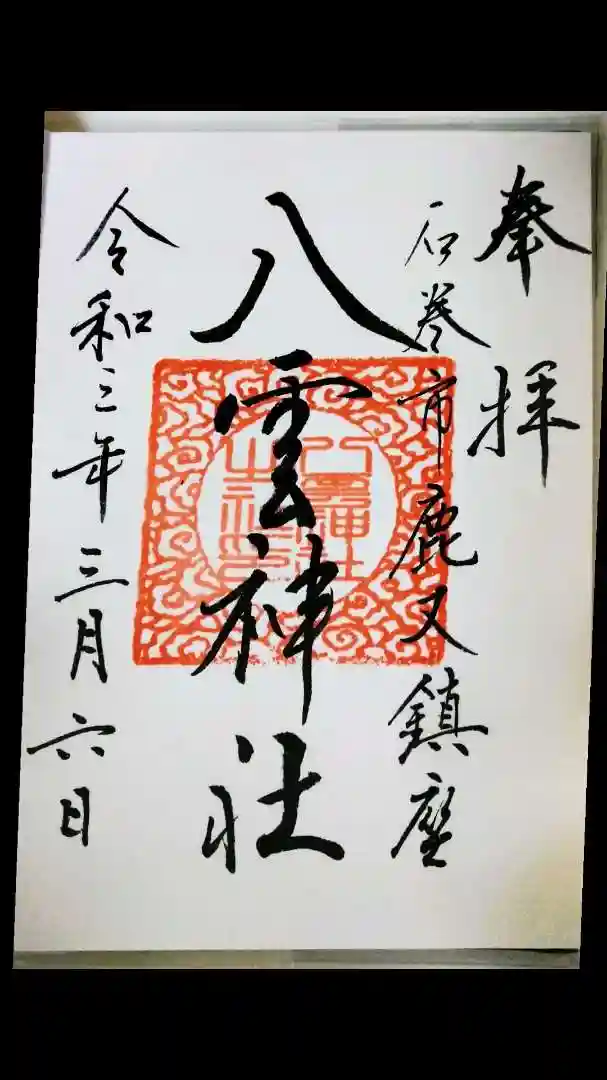 奉拝
石巻市鹿又鎮座
八雲神社
令和三年三月六日
八雲神社之印